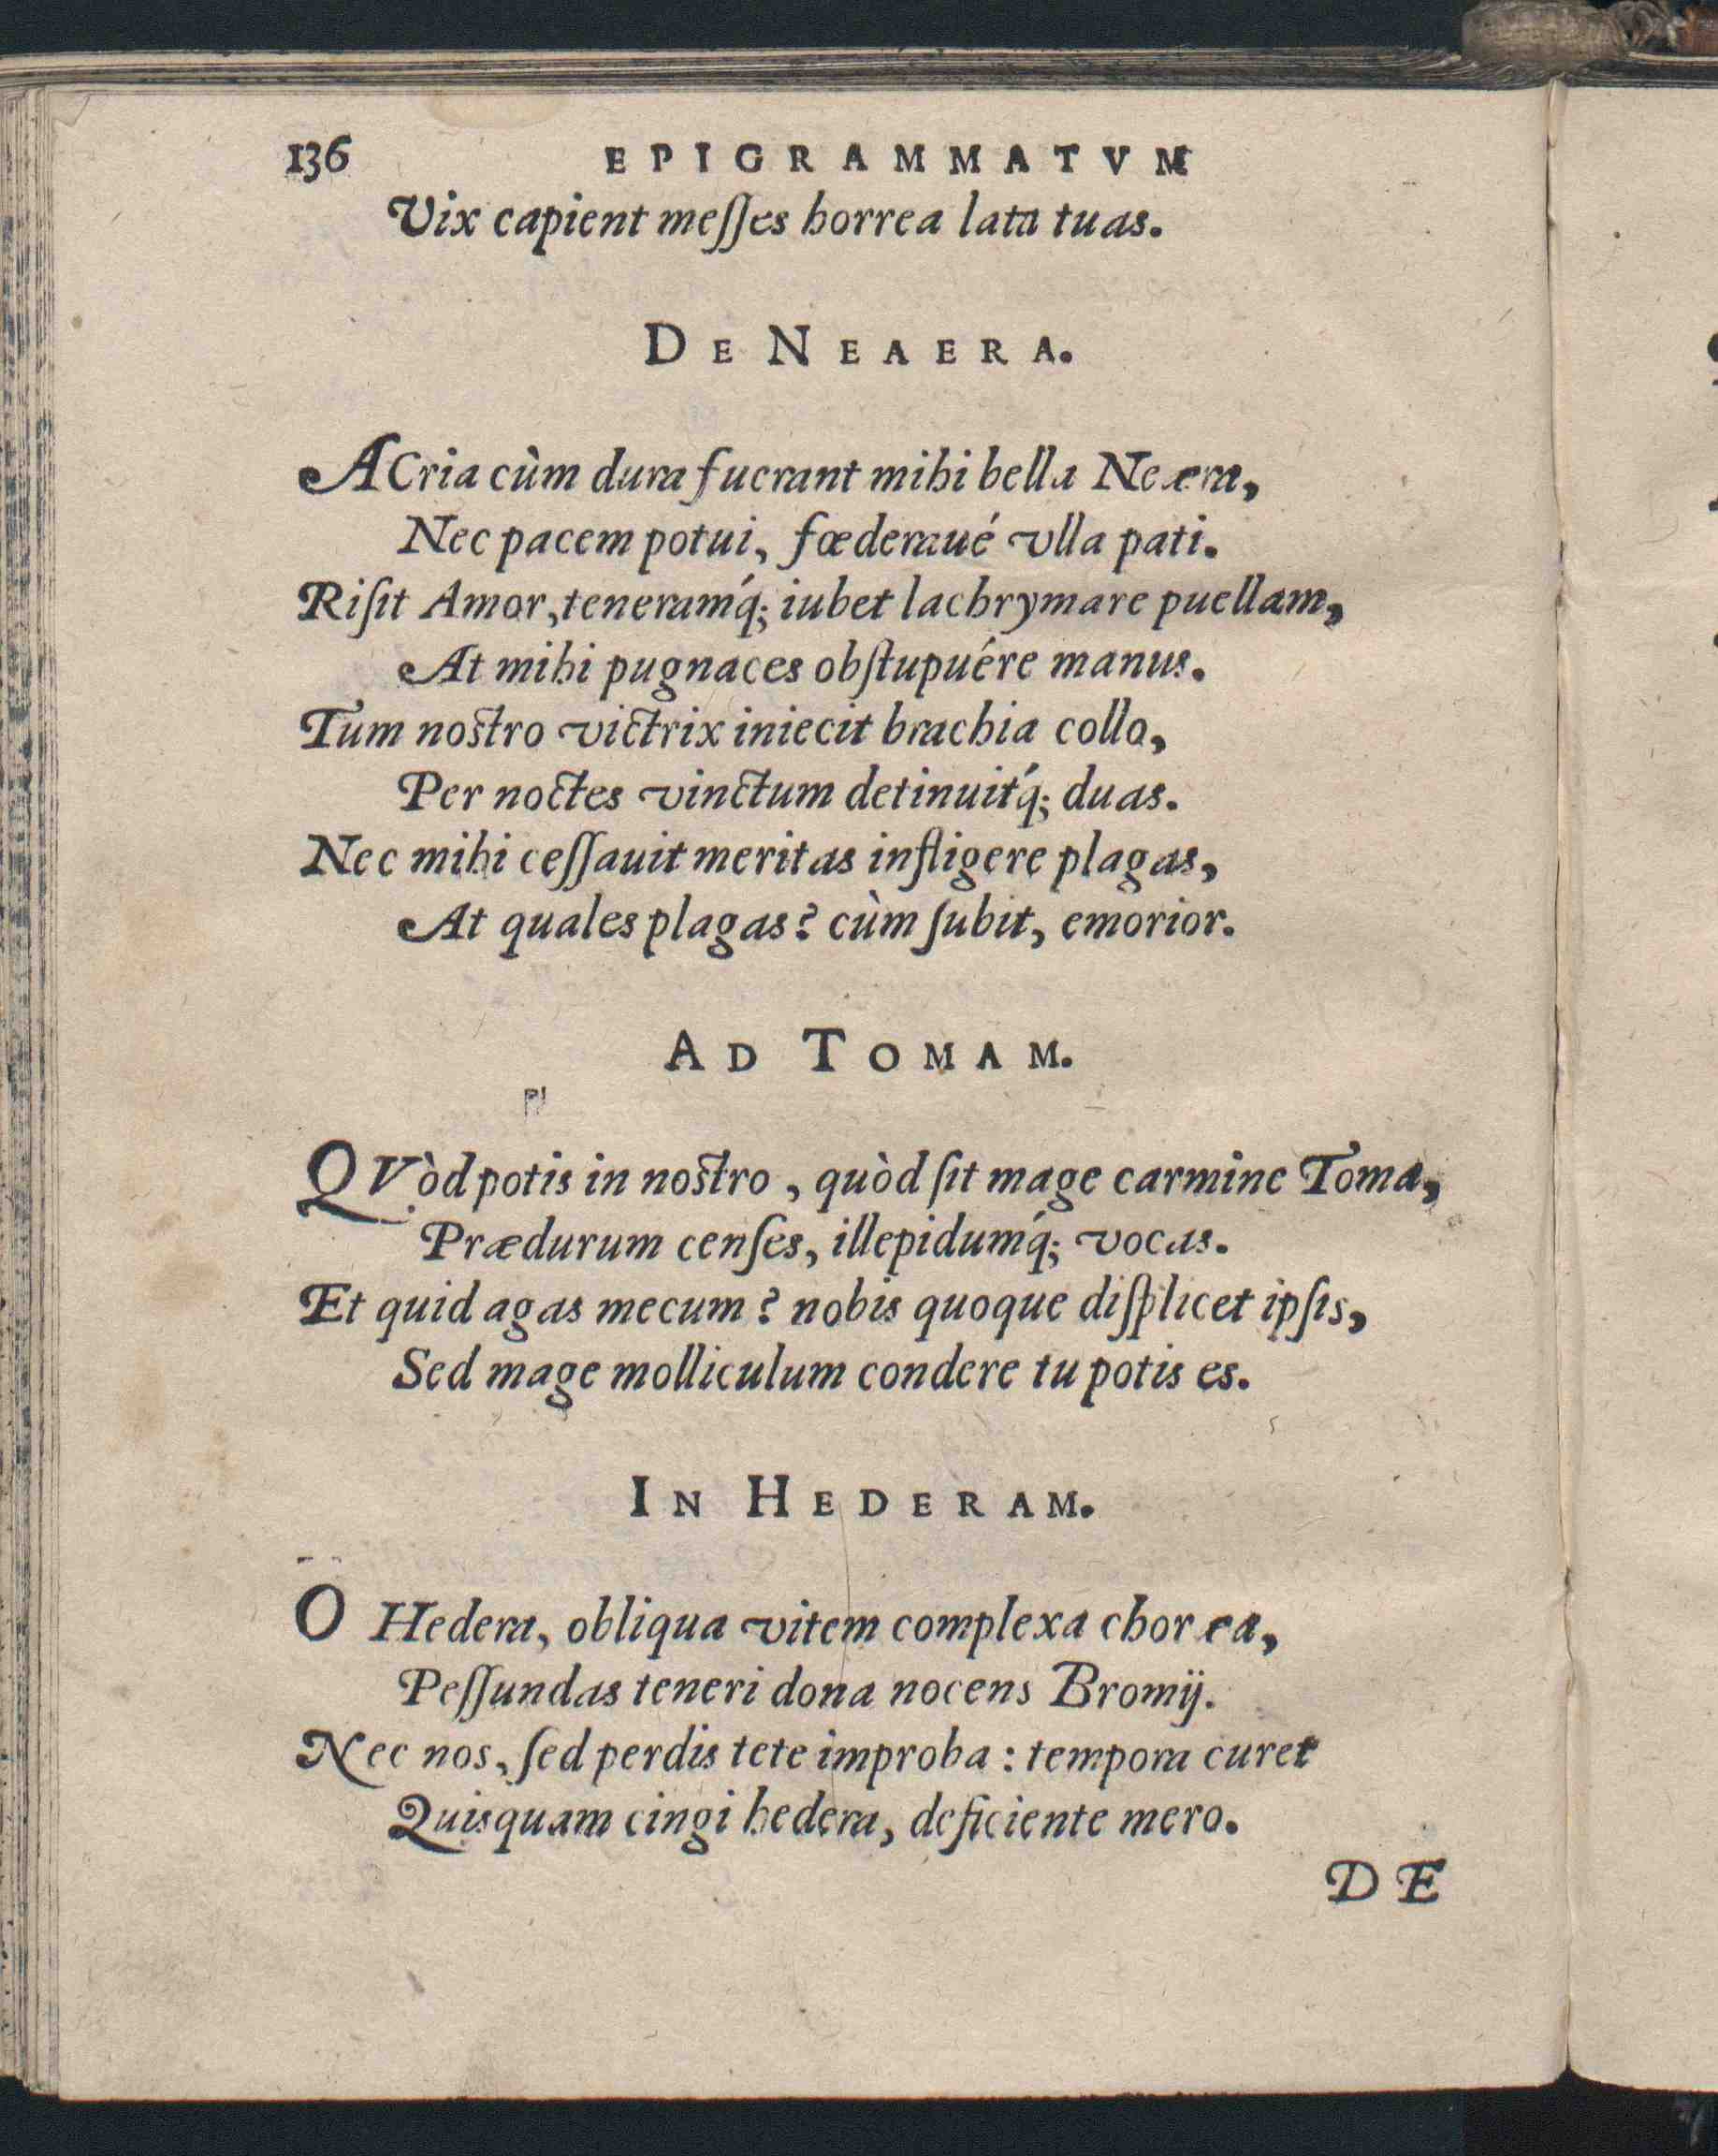 136 EPIGRAMMATVM
Vix capient meſſes horrea lata tuas.
DE NEAERA.
ACria cùm dura fuerant mihi bella Neæra,
Nec pacem potui, fœderaué vlla pati.
Riſit Amor, teneramq́; iubet lachrymare puellam,
At mihi pugnaces obſtupuére manus.
Tum nostro victrix iniecit brachia collo,
Per noctes vinctum detinuitq́; duas.
Nec mihi ceſſauit meritas infligere plagas,
At quales plagas? cùm ſubit, emorior.
AD TOMAM.
QVòd potis in nostro, quòd ſit mage carmine Toma,
Prædurum cenſes, illepidumq́; vocas.
Et quid agas mecum? nobis quoque diſplicet ipſis,
Sed mage molliculum condere tu potis es.
IN HEDERAM.
O Hedera, obliqua vitem complexa chorea,
Peſſundas teneri dona nocens Bromij.
Nec nos, ſed perdis tete improba: tempora curet
Quisquam cingi hedera, deficiente mero.
DE